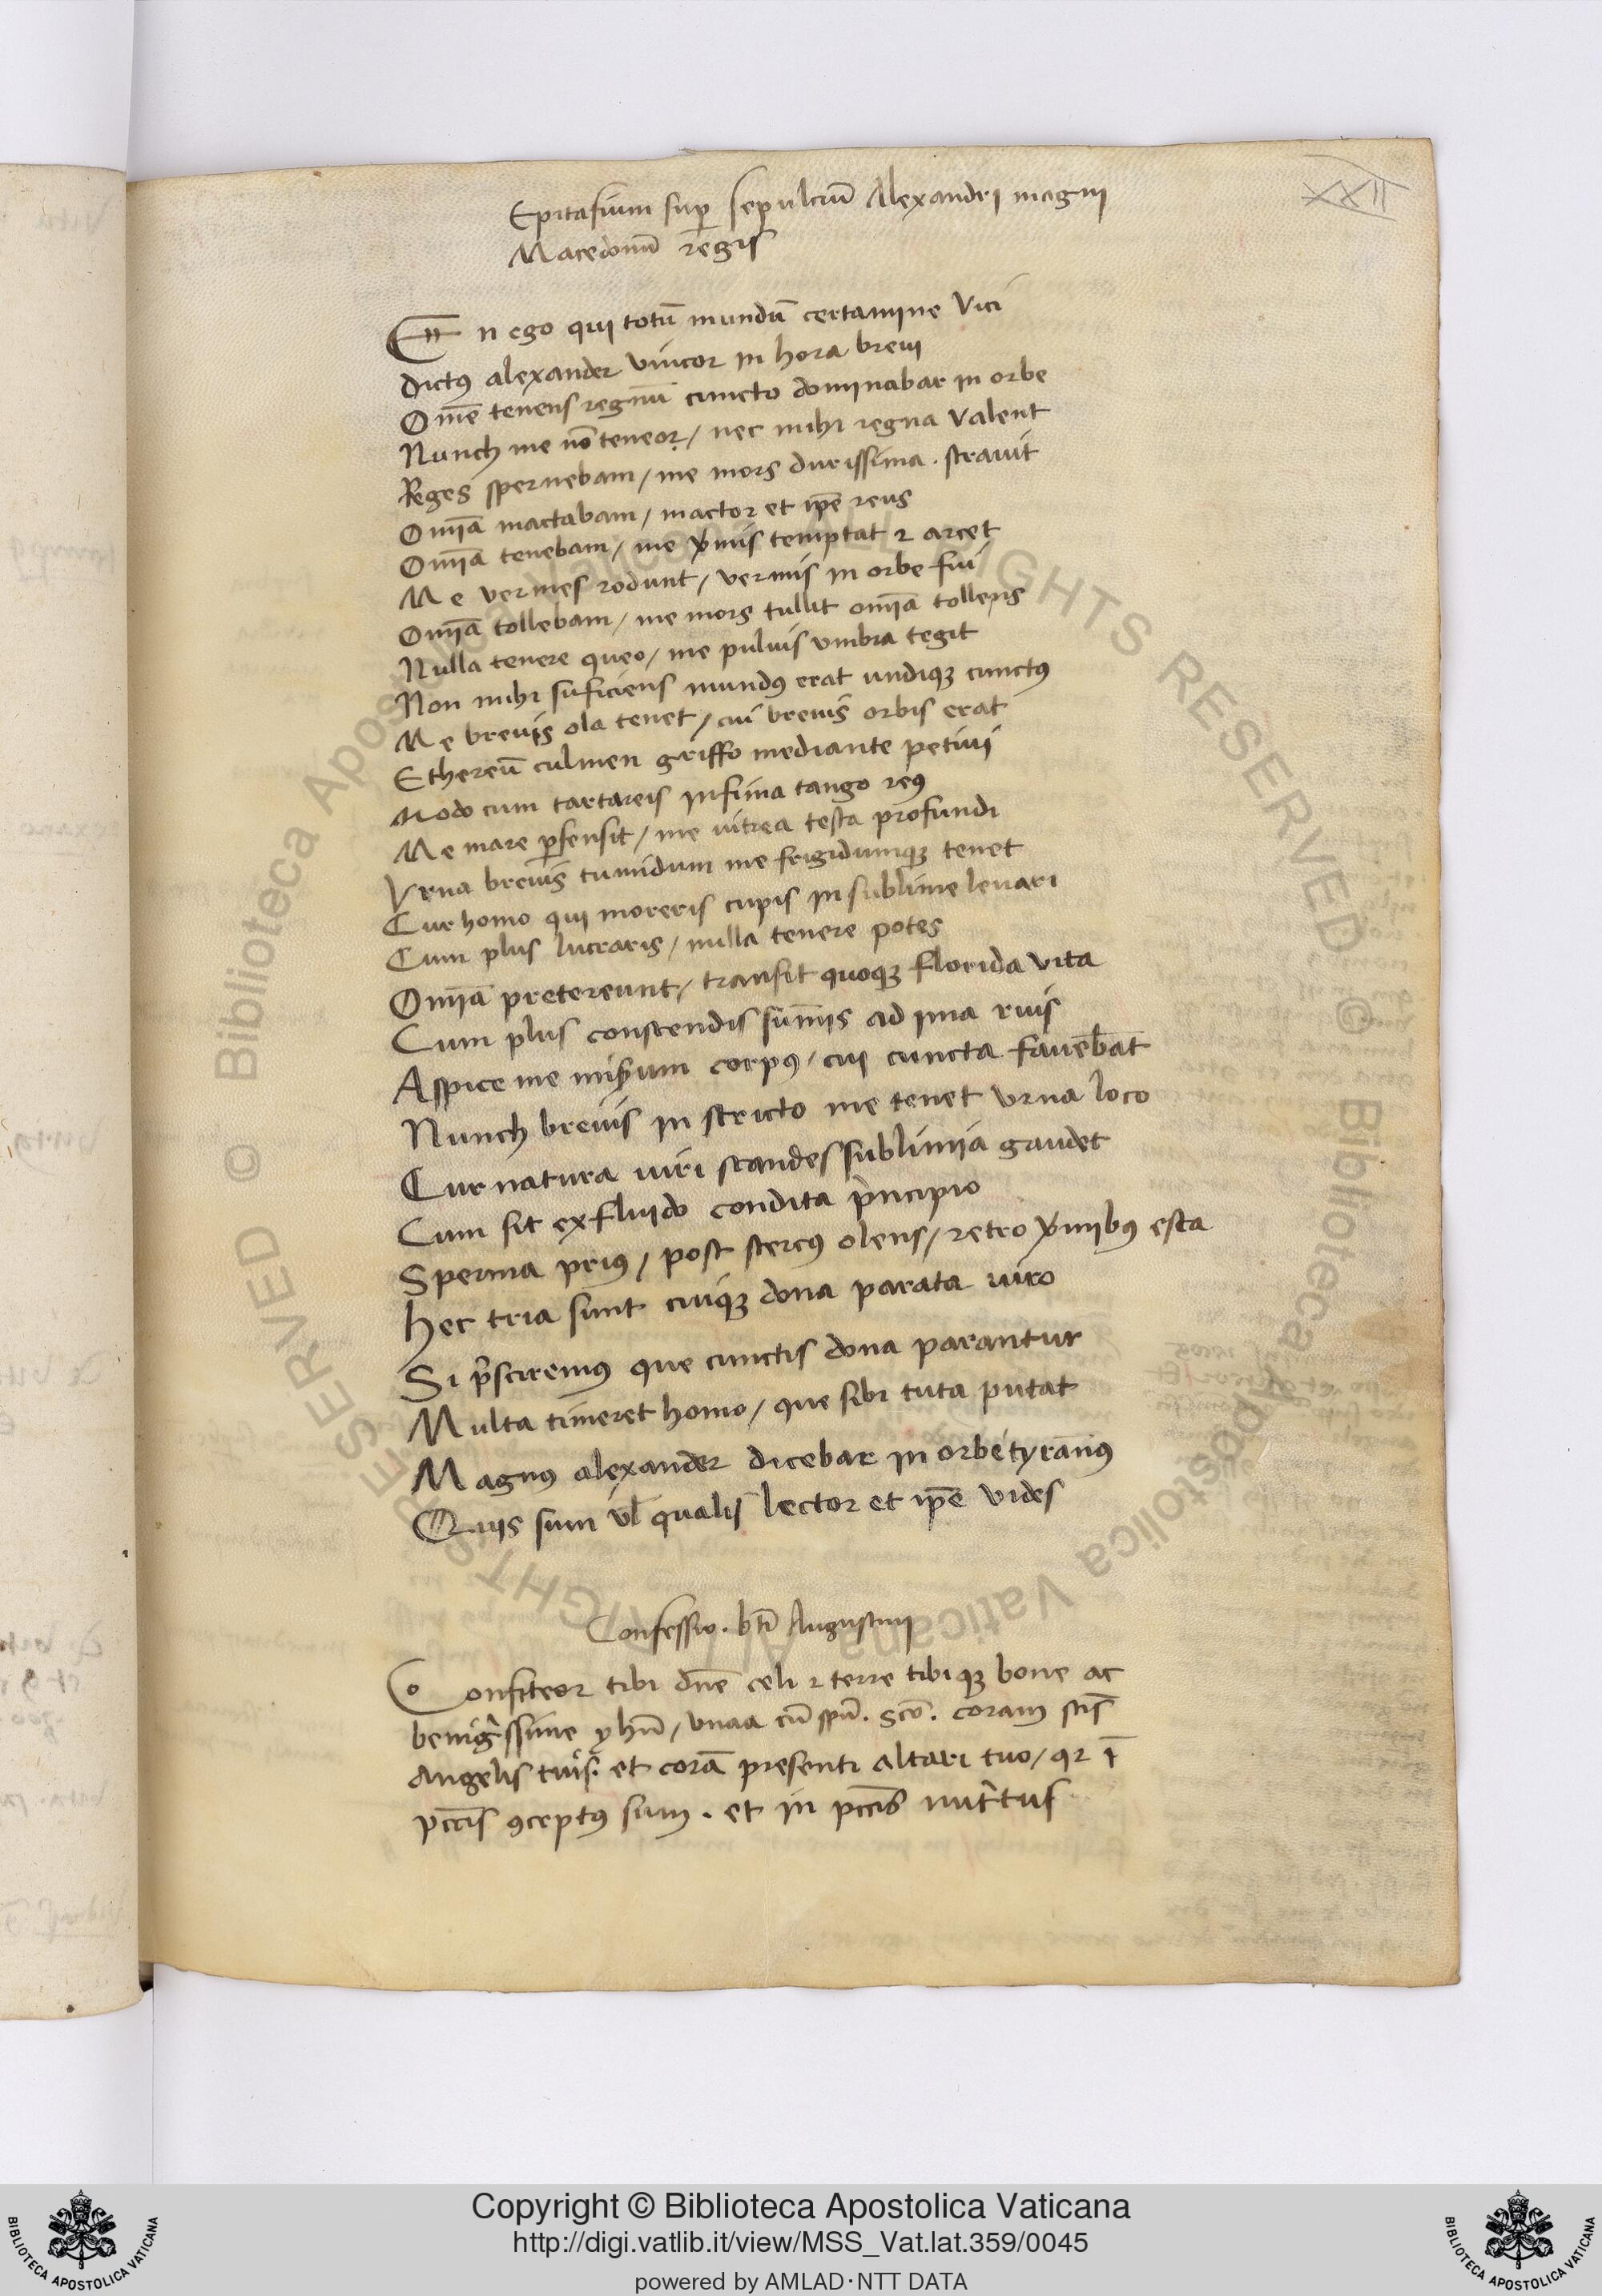 XXII
Epitafium sup̱ sepulcrū Alexandri magni
Macedonū regis
En ego qui totū mundū certamine vici
Dictꝰ alexander vincor in hora brevi
Om̄e tenens regnū cuncto dominabar in orbe
Nunch me nō teneor / nec mihi regna valent
Reges spernebam / me mors durissima . stravit
Om̄ia mactabam / mactor et ip̄e reus
Om̄ia tenebam / me v̄mis temptat ⁊ arcet
Me vermes rodunt / vermis in orbe fui
Om̄ia tollebam / me mors tullit om̄ia tollens
Nulla tenere queo / me pulvis umbra tegit
Non mihi suficiens mundꝰ erat undiqꝫ cunctꝰ
Me brevis ola tenet / cui brevis orbis erat
Ethereū culmen griffo mediante petivi
Modo cum tartareis infima tango reꝰ
Me mare p̱sensit / me vitrea testa profundi
Vrna brevis tumidum me frigidumqꝫ tenet
Cur homo qui moreris cupis in sublime levari
Cum plus lucraris / nulla tenere potes
Om̄ia pretereunt / transit quoqꝫ florida vita
Cum plus conscendis sum̄is ad ima ruis
Aspice me mis̄um corpꝰ / cui cuncta faveb̄at
Nunch brevis in stricto me tenet vrna loco
Cur natura viri scandes sublimia gaudet
Cum sit ex fluido condita pͥncipio
Sperma priꝰ / post stercꝰ olens / retro v̄mibꝰ esca
Hec tria sunt cuiqꝫ dona parata viro
Si p̄sciremꝰ que cunctis dona parantur
Multa timeret homo / que sibi tuta putat
Magnꝰ alexander dicebar in orbe tyrānꝰ
Quis sum vl̄ qualis lector et ip̄e vides
Confessio . bt̄i Augustini
Confiteor tibi dn̄e celi ⁊ terre tibi qꝫ bone ac
benigͥssime yhū / vnaa cū spū . scō . coram sc̄is
Angelis tuis . et corā presenti altari tuo / qꝛ ī
pcc̄is ꝯceptꝰ sum . et in pcc̄is nutͥtus
Copyright © Biblioteca Apostolica Vaticana
http://digi.vatlib.it/view/MSS_Vat.lat.359/0045
powered by AMLAD·NTT DATA
BIBLIOTECA APOSTOLICA VATICANA
BIBLIOTECA APOSTOLICA VATICANA